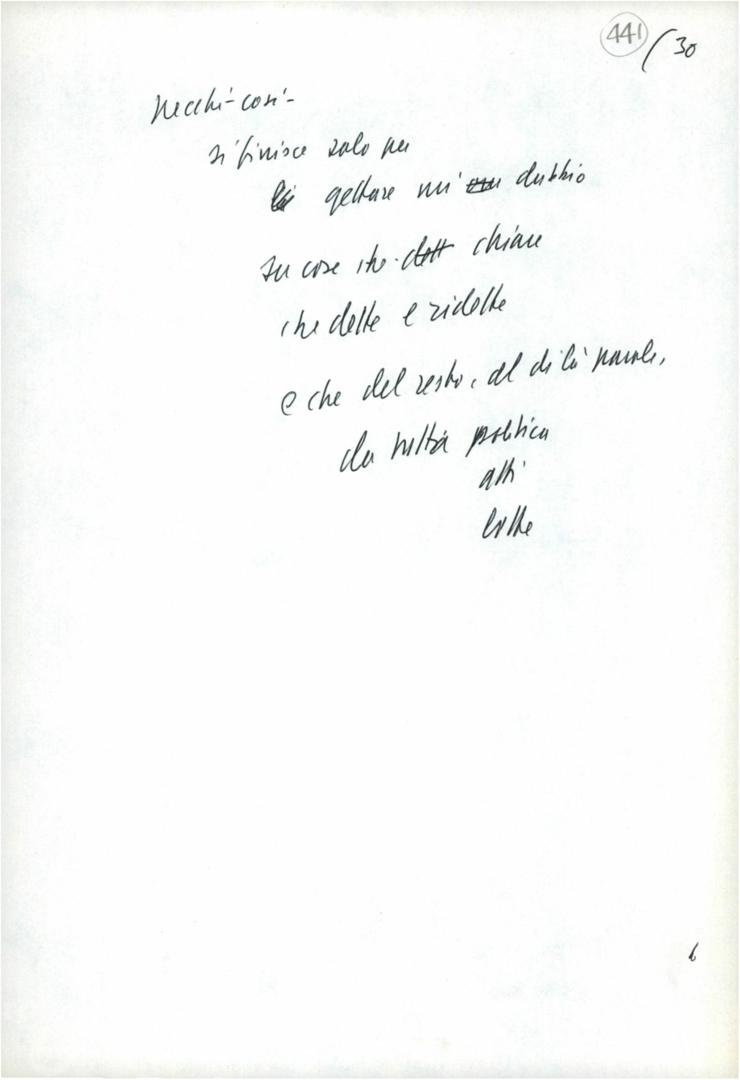 441 / 30
perché - così -
si finisce solo per
gettare un dubbio
su cose che dett chiare
che dette e ridette
e che del resto, al di là parole,
da tutta politica
atti
lotte